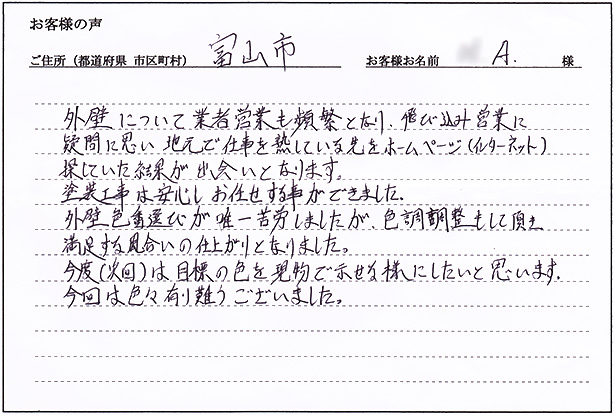 お客様の声
ご住所（都道府県 市区町村） 富山市 お客様お名前 A. 様
外壁について業者営業も頻繁となり、飛び込み営業に
疑問に思い 地元で仕事を熱している先をホームページ（インターネット）
探していた結果が出会いとなります。
塗装工事は安心しお任せする事ができました。
外壁色番選びが唯一苦労しましたが、色調調整もして頂き
満足する風合いの仕上がりとなりました。
今度（次回）は目標の色を現物で示せる様にしたいと思います。
今回は色々有り難うございました。